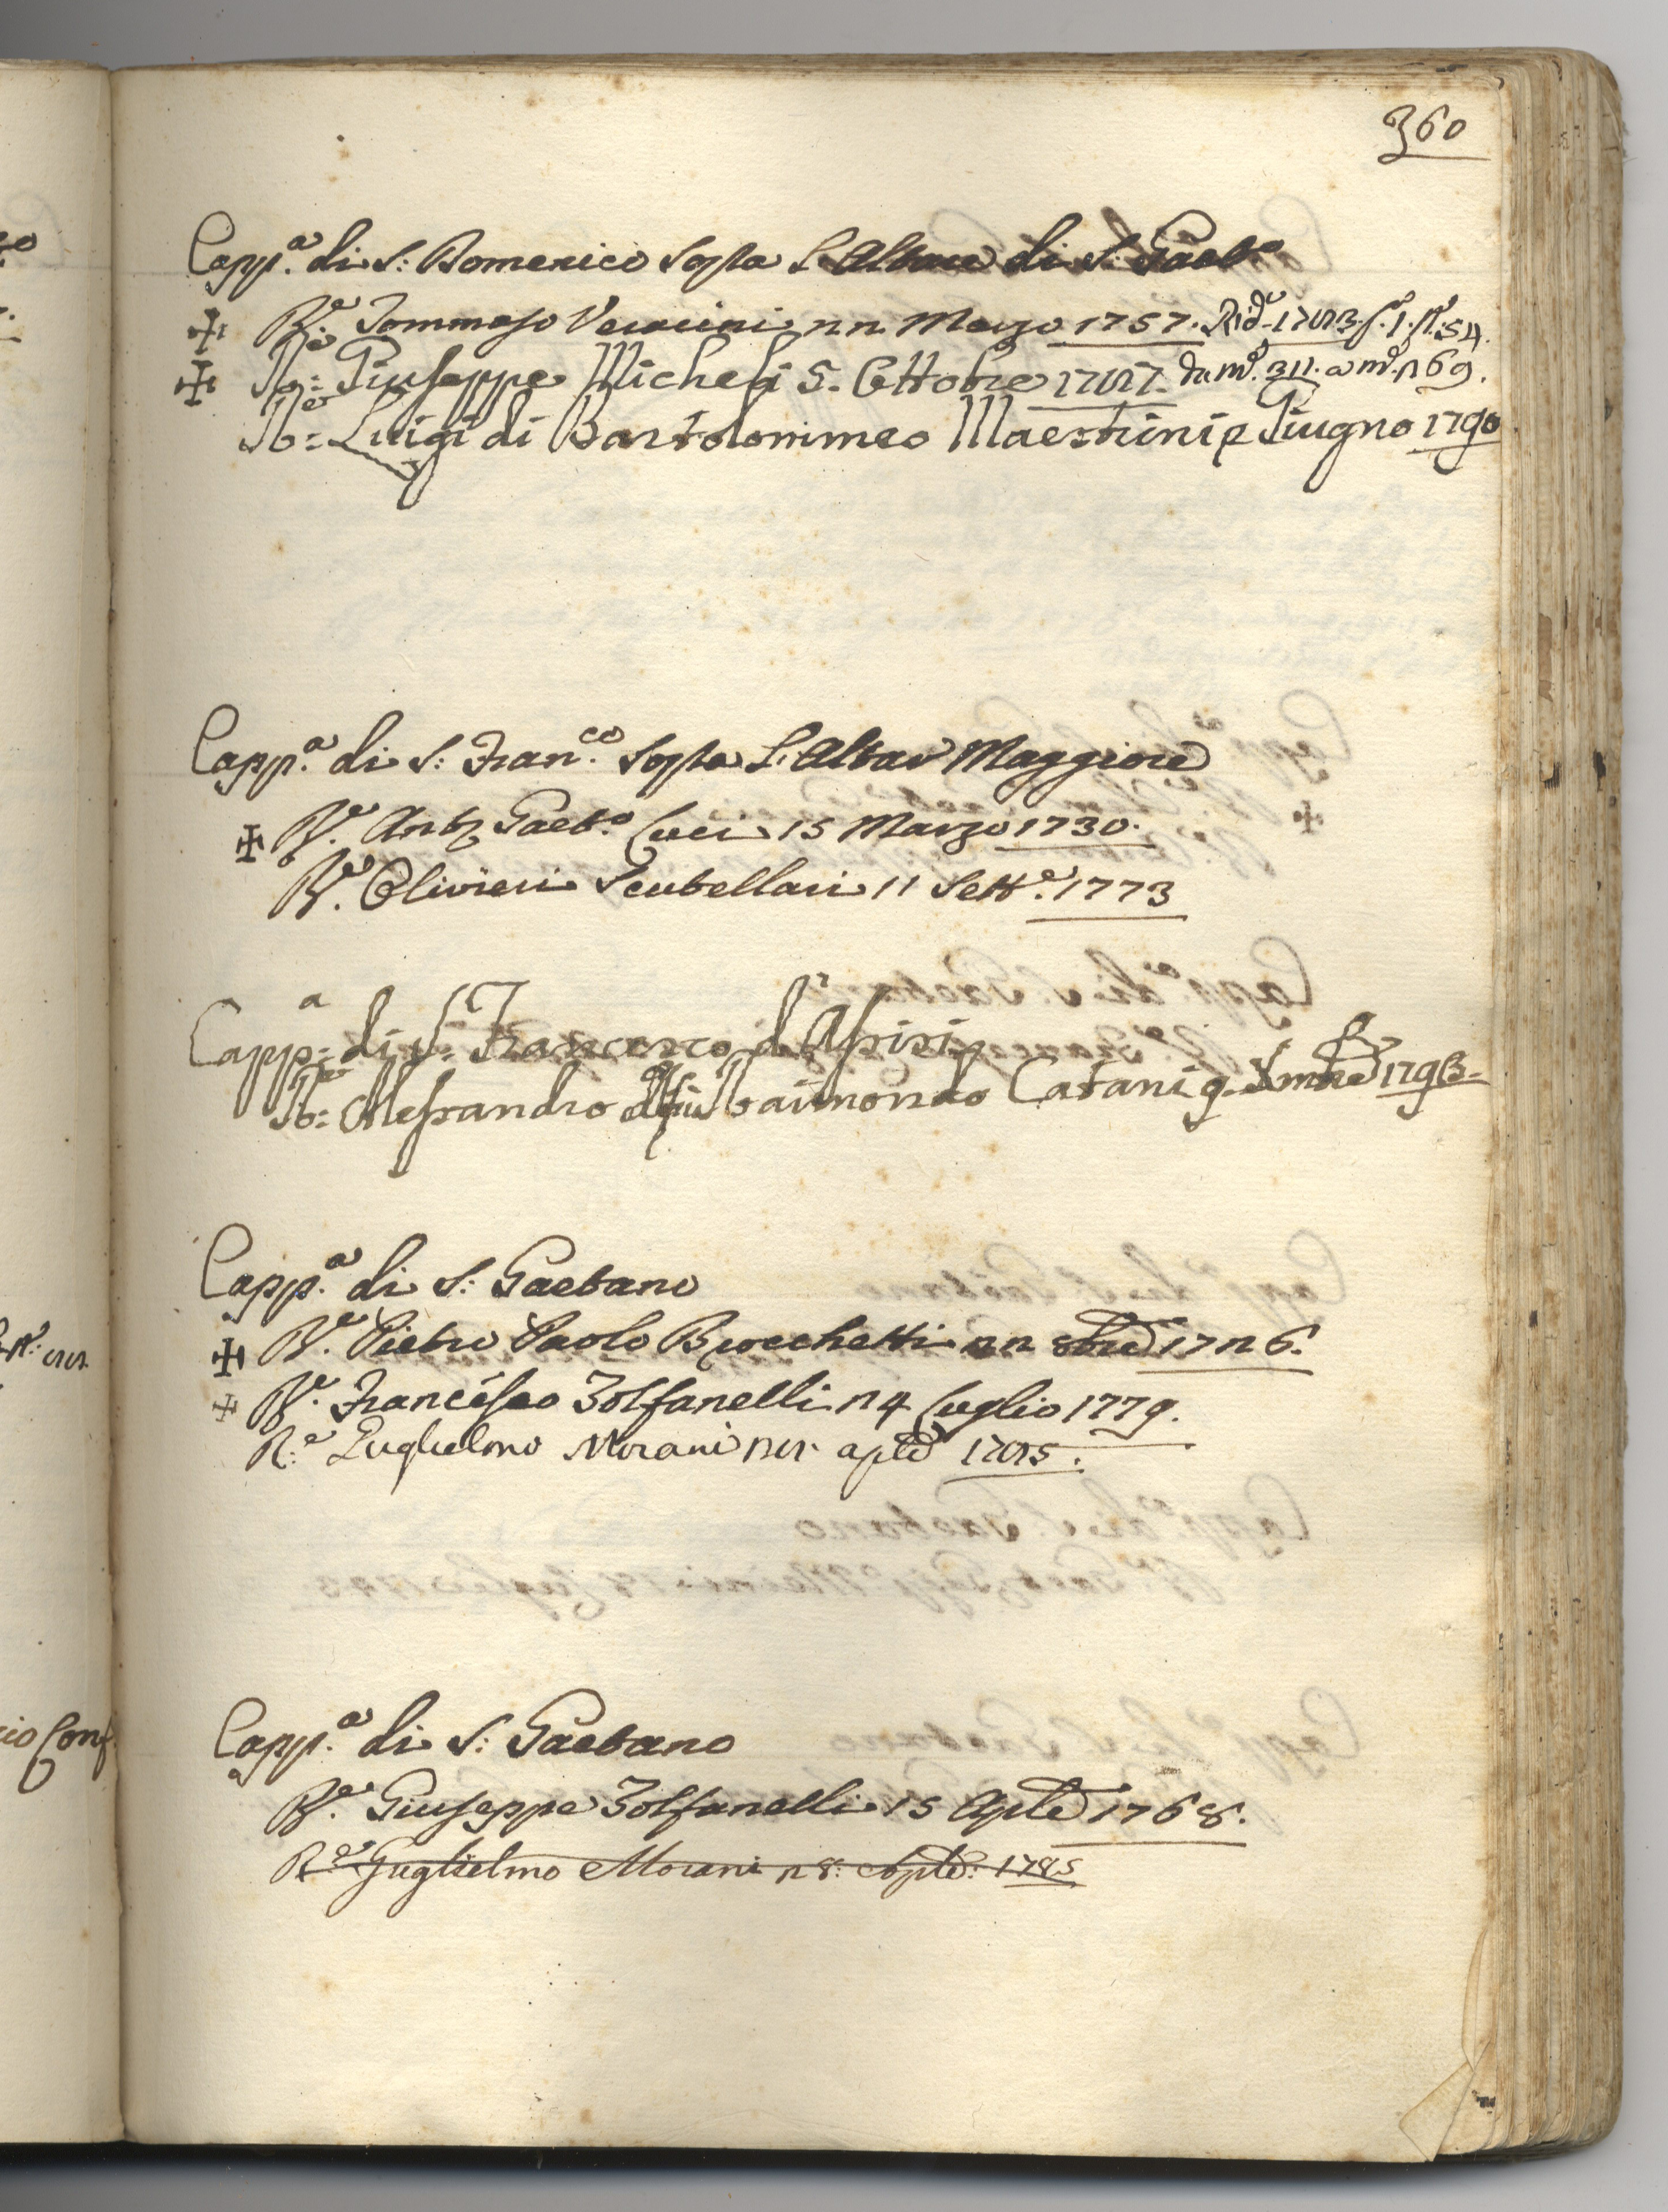 360
Capp.ª di S: Domenico sopra l'Altare di S: Gaet.º
R.e Tommaso Veracini 22 Marzo 1757. Rid.e 1783. f.º 1. n.º 54.
R.e Giuseppe Micheli 5. Ottobre 1787. da m.º 311. a m.º 269.
R.e Luigi di Bartolommeo Maestrini 2 Giugno 1790
Capp.ª di S: Fran.co sopra l'Altar Maggiore
R.e Ant.º Gaet.º Luci 15 Marzo 1730.
R.e Olivieri Scubellari 11 Sett.e 1773
Capp.ª di S. Francesco d'Assisi
R.e Alessandro del fu Raimondo Catani 9. 1793
Capp.ª di S: Gaetano
R.e Pietro Paolo Brocchetti 22 8bre 1726.
R.e Francesco Zolfanelli 24 Luglio 1779.
R.e Guglielmo Morani 28 aple 1785.
Capp.ª di S: Gaetano
R.e Giuseppe Zolfanelli 15 Aple 1768.
R.e Guglielmo Morani 28: Aple: 1785